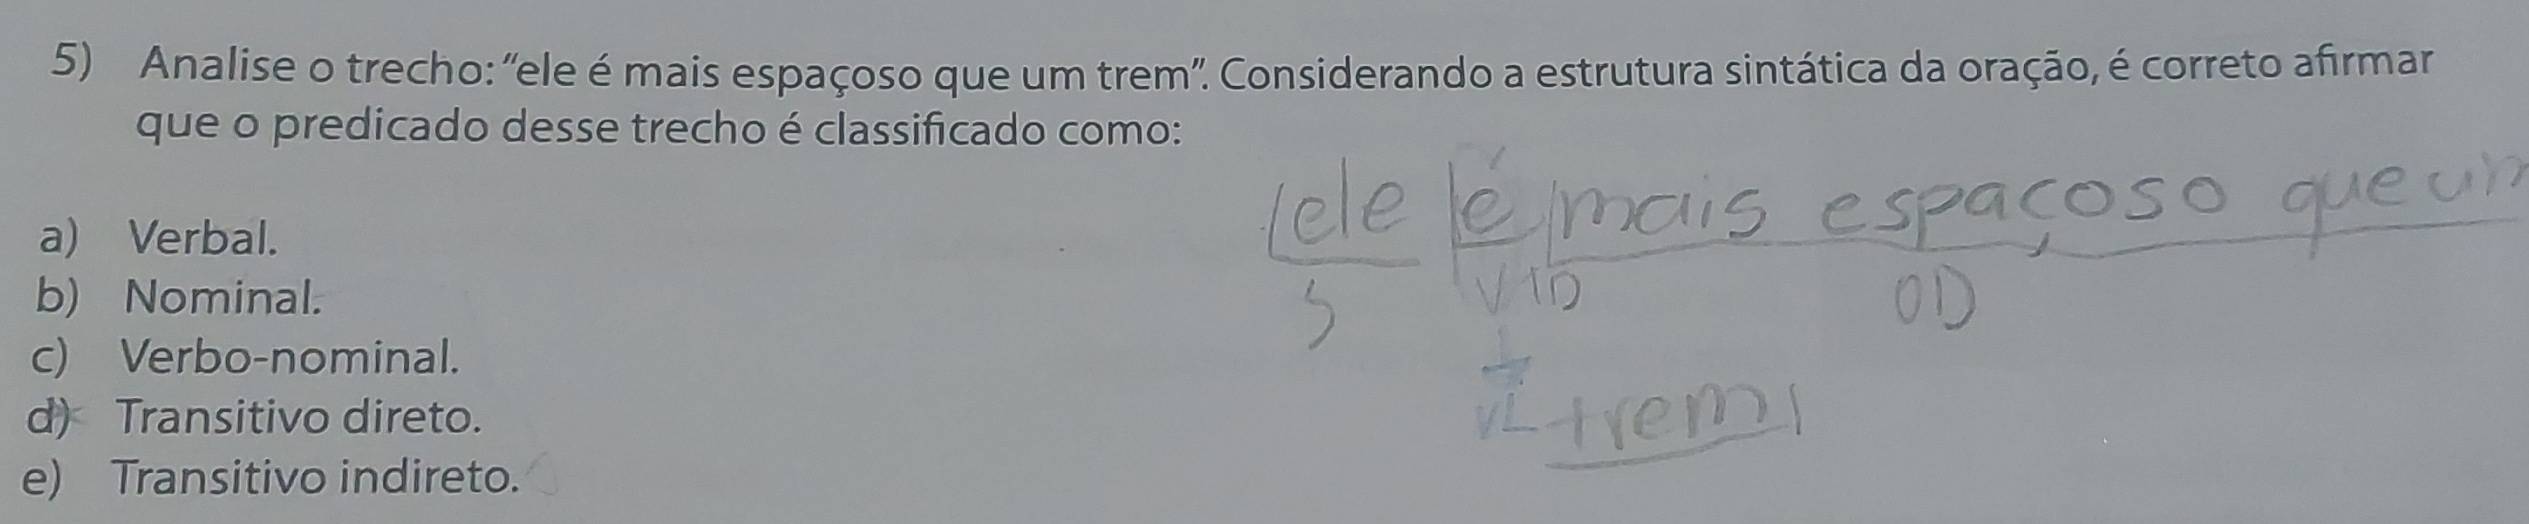 5) Analise o trecho: “ele é mais espaçoso que um trem”. Considerando a estrutura sintática da oração, é correto afirmar
que o predicado desse trecho é classificado como:
ele é mais espaçoso que um
a) Verbal.
S VTD OD
b) Nominal.
c) Verbo-nominal.
d) Transitivo direto.
VL trem
e) Transitivo indireto.